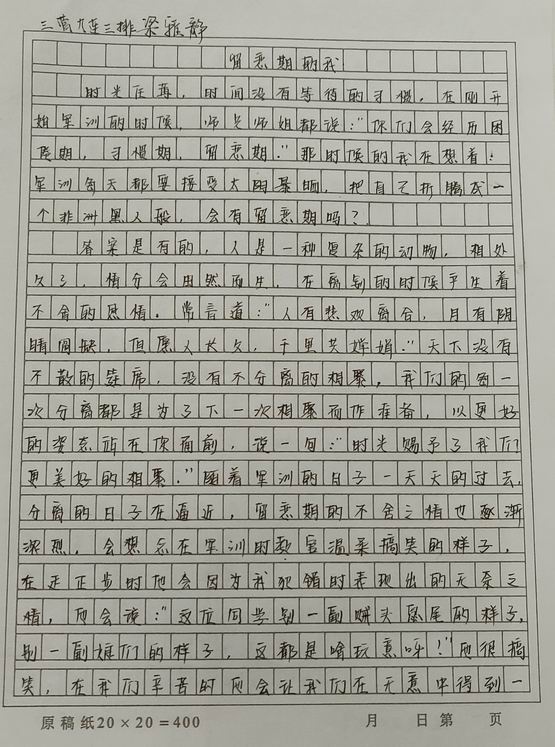 三营九连三排梁雅静
留恋期的我
时光荏苒，时间没有等待的习惯，在刚开
始军训的时候，师兄师姐都说："你们会经历困
难期，习惯期，留恋期."那时候的我在想着：
军训每天都要接受太阳暴晒，把自己折腾成一
个非洲黑人般，会有留恋期吗？
答案是有的，人是一种复杂的动物，相处
久了，情分会由然而生，在离别的时候产生着
不舍的恩情。常言道："人有悲欢离合，月有阴
晴圆缺，但愿人长久，千里共婵娟."天下没有
不散的筵席，没有不分离的相聚，我们的每一
次分离都是为了下一次相聚而作准备，以更好
的姿态站在你面前，说一句："时光赐予了我们
更美好的相聚."随着军训的日子一天天的过去，
分离的日子在逼近，留恋期的不舍之情也逐渐
浓烈，会想念在军训时教官温柔搞笑的样子，
在走正步时他会因为我犯错时表现出的无奈之
情，他会说："这位同学别一副 头 尾的样子，
别一副娘们的样子，这都是啥玩意呀！"他很搞
笑，在我们辛苦时他会让我们在无意中得到一
原稿纸20×20=400 月 日第 页